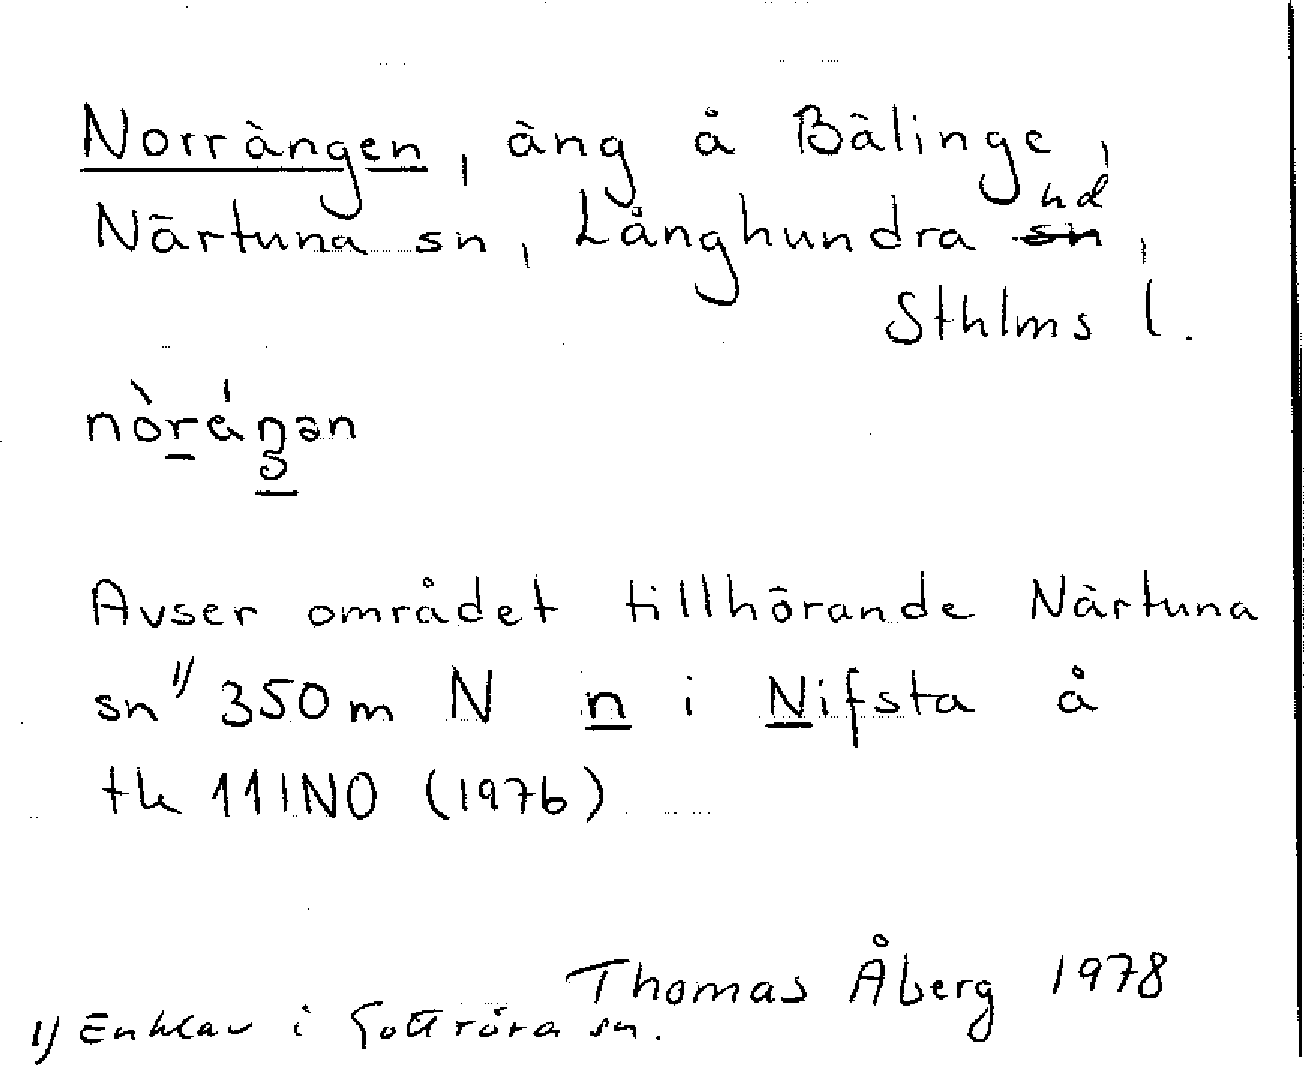 Norrängen, äng å Bälinge,
Närtuna sn, Långhundra ~~sn~~ hd,
Sthlms l.
Avser området tillhörande Närtuna
sn 1) 350 m N n i Nifsta å
tk 11INO (1976)
Thomas Åberg 1978
1) Enklav i Gottröra sn.